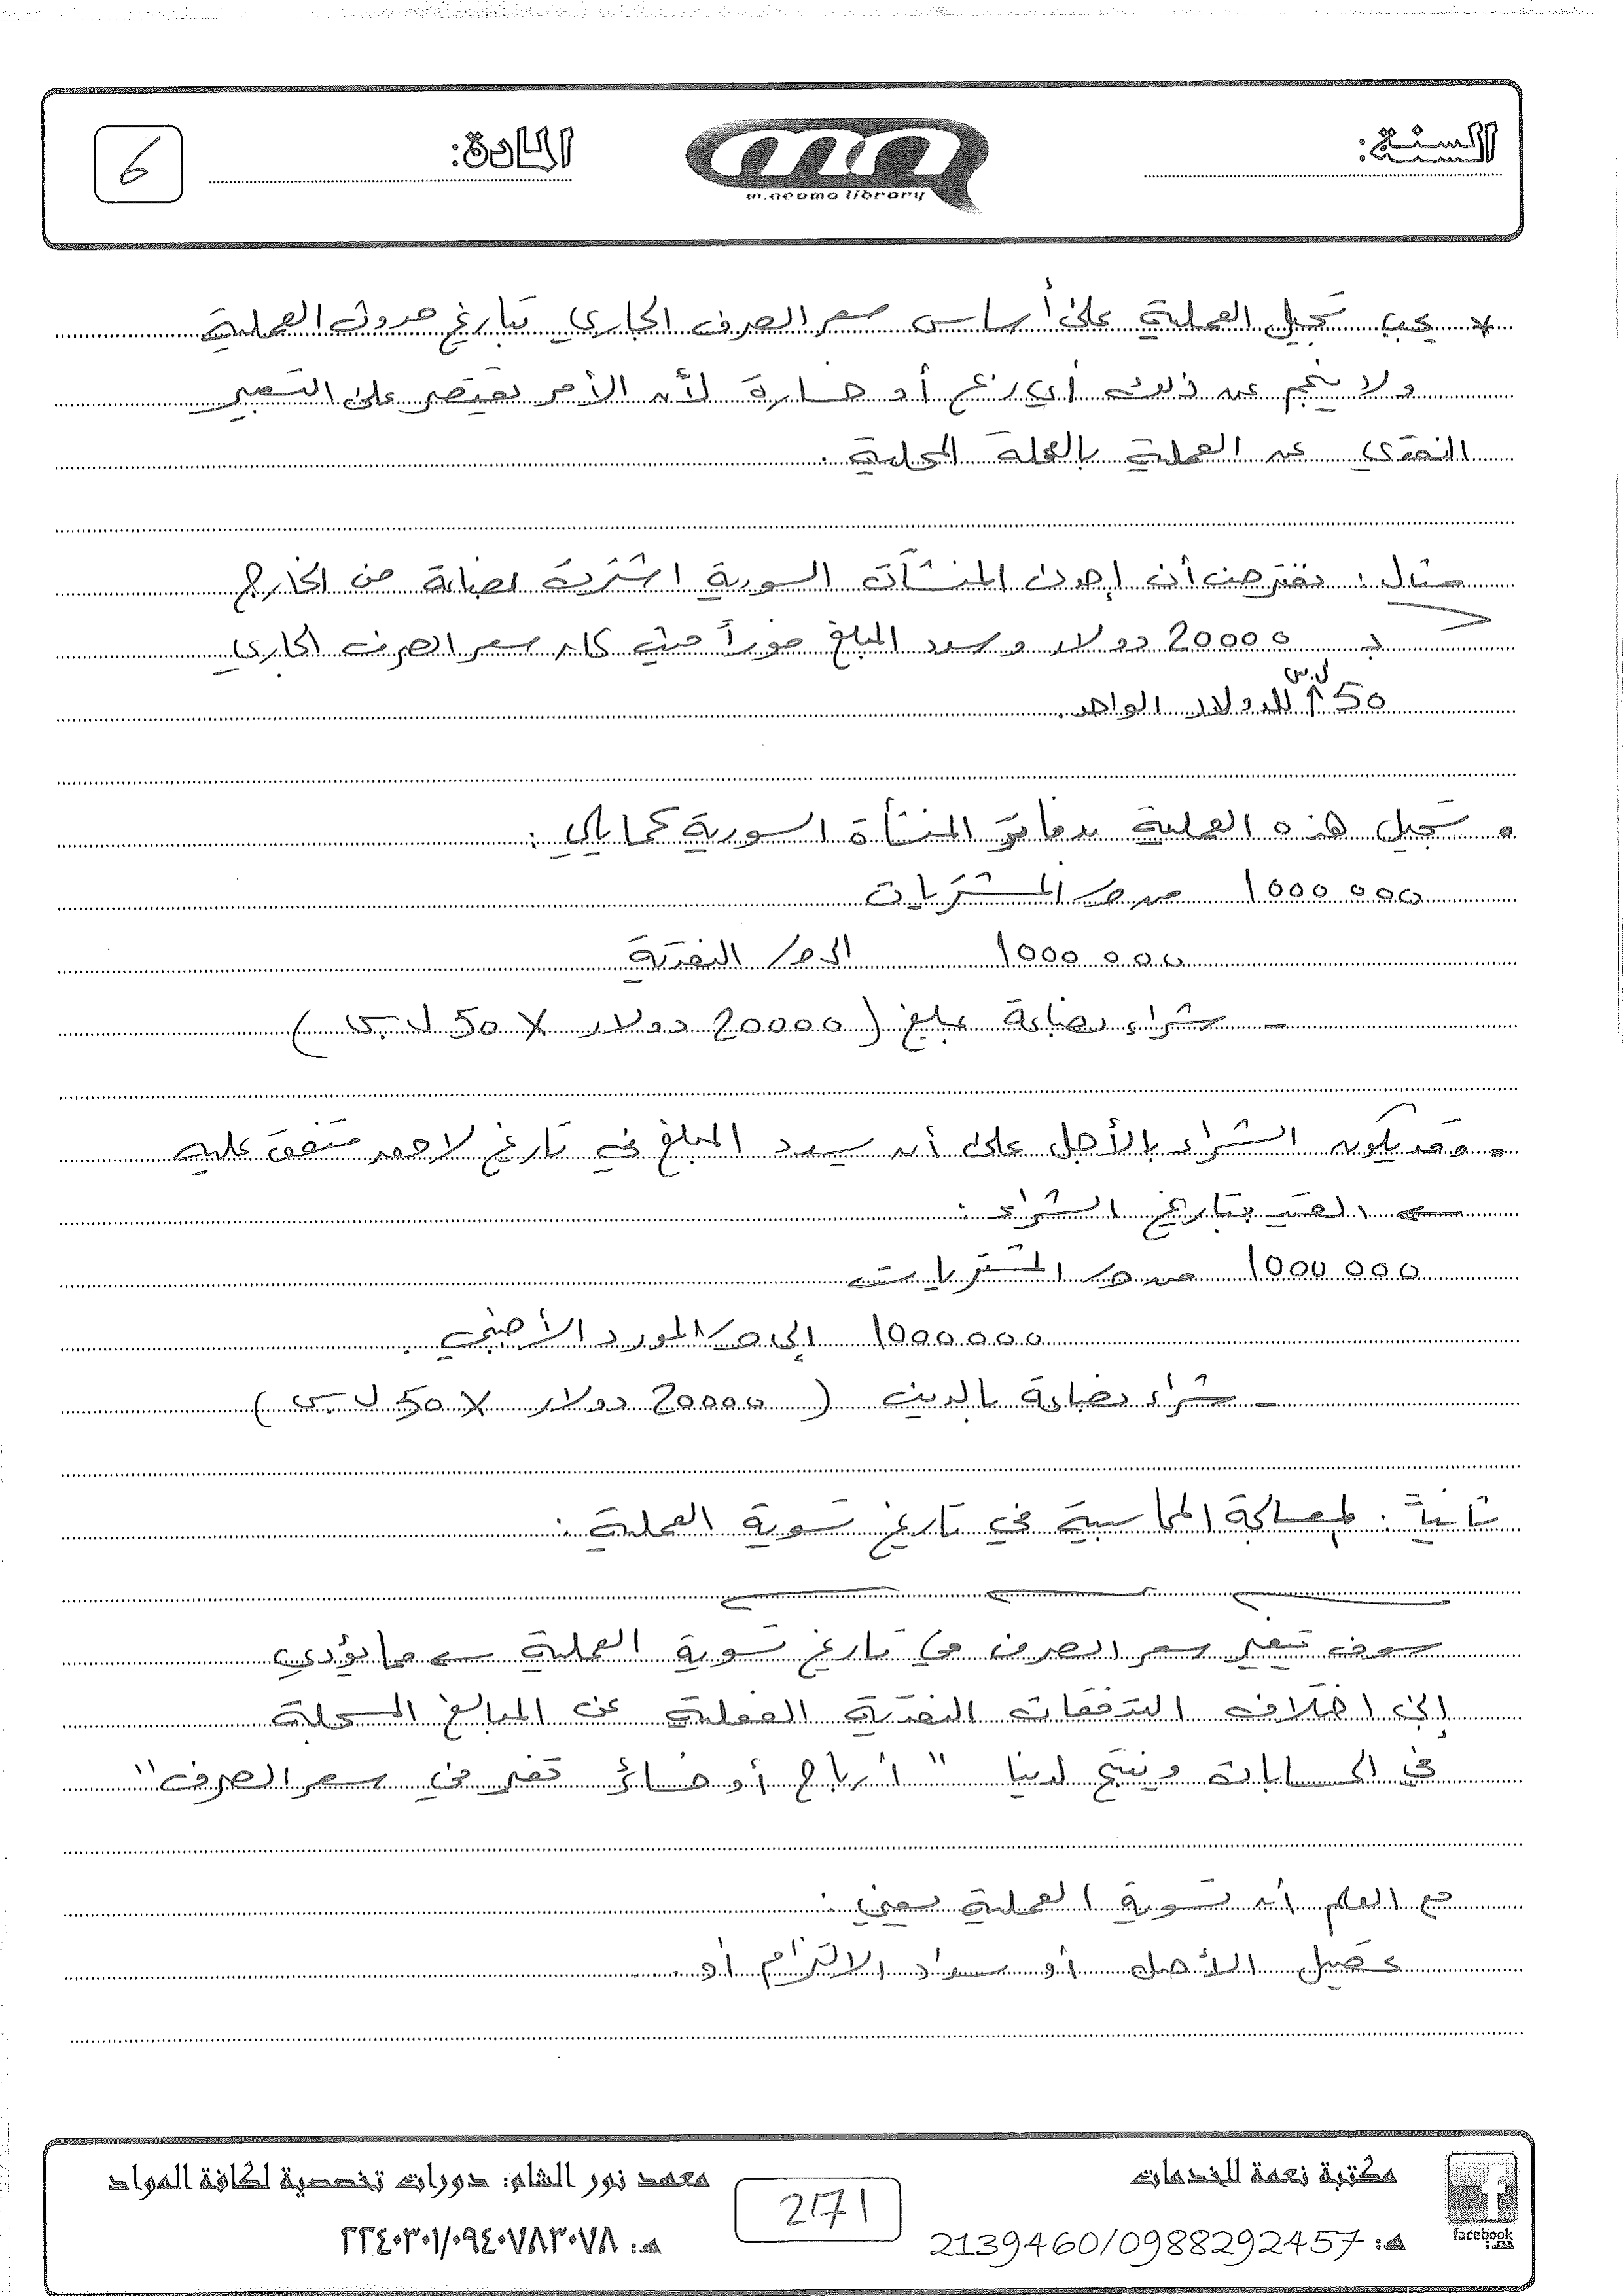 السنة:
m.neama library
المادة:
6
* يجب تسجيل العملية على أساس سعر الصرف الجاري بتاريخ حدوث العملية
ولا ينجم عن ذلك أي ربح أو خسارة لأن الأمر يقتصر على التعبير
النقدي عن العملية بالعملة المحلية.
مثال: نفترض أن إحدى المنشآت السورية اشترت بضاعة من الخارج
بـ 20000 دولار وسدد المبلغ فوراً حيث كان سعر الصرف الجاري
50 ل.س للدولار الواحد.
• تسجل هذه العملية بدفاتر المنشأة السورية كما يلي:
1000 000 من ح/ المشتريات
1000 000 الى ح/ النقدية
- شراء بضاعة بمبلغ (20000 دولار × 50 ل.س)
• وقد يكون الشراء بالأجل على أن يسدد المبلغ في تاريخ لاحق متفق عليه
← القيد بتاريخ الشراء:
1000 000 من ح/ المشتريات
1000000 إلى ح/ المورد الأجنبي.
- شراء بضاعة بالدين (20000 دولار × 50 ل.س)
ثانياً: المعالجة المحاسبية في تاريخ تسوية العملية:
سوف يتغير سعر الصرف في تاريخ تسوية العملية ← مما يؤدي
إلى اختلاف التدفقات النقدية الفعلية عن المبالغ المسجلة
في الحسابات وينتج لدينا " أرباح أو خسائر تغير في سعر الصرف"
مع العلم أن تسوية العملية يعني:
تحصيل الأصل أو سداد الالتزام أو..
مكتبة نعمة للخدمات
هـ: 2139460/0988292457
facebook
271
معهد نور الشام: دورات تخصصية لكافة المواد
هـ: ٢٢٤٠٣٠١/٠٩٤٠٧٨٣٠٧٨